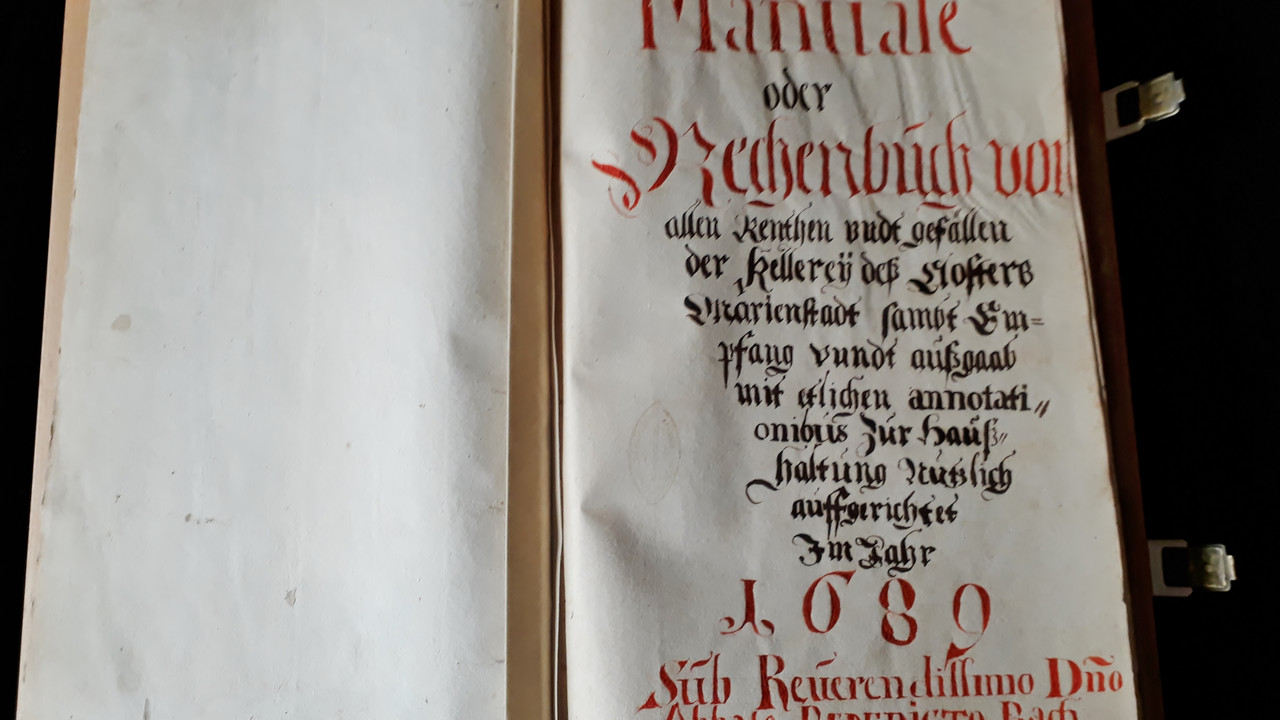 Manuale
oder
Rechenbuch von
allen Renthen undt gefällen
der Kellereÿ deß Closters
Marienstadt sambt Em=
pfang vundt außgaab
mit etlichen annotati„
onibus Zur Hauß„
haltung Nützlich
auffgerichtet
Im Jahr
1689
Sub Reuerendissimo Dño
Abbate BENEDICTO Bach